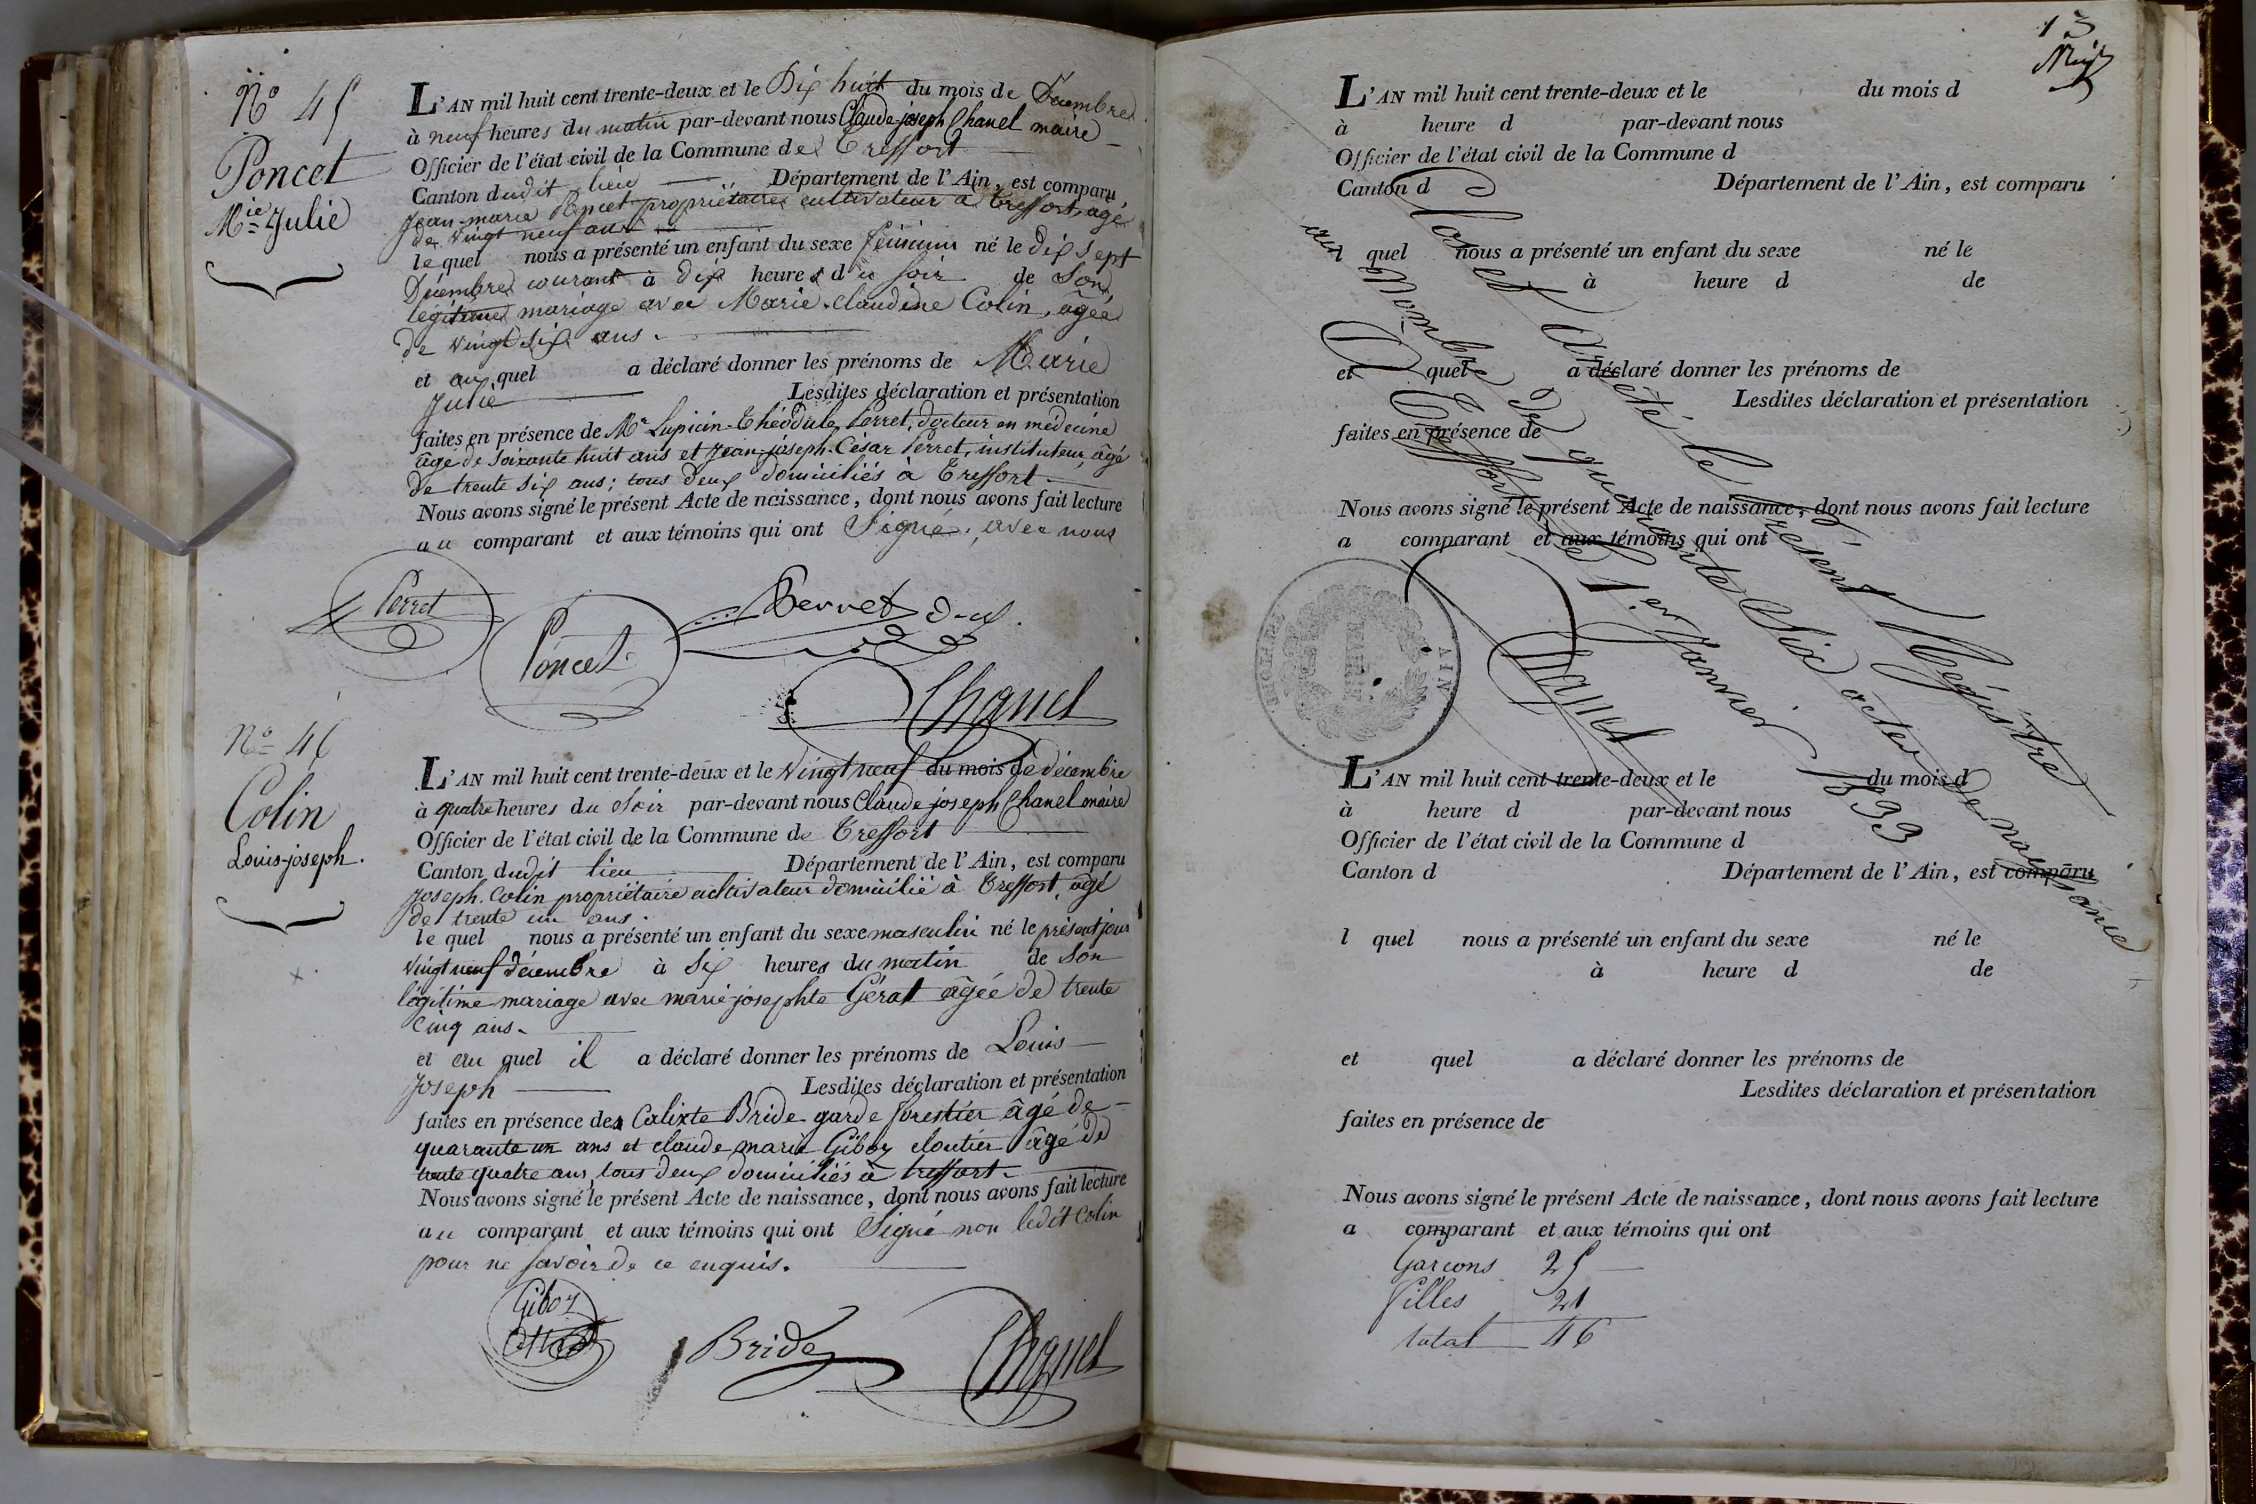 N° 45
Poncet
Mie Julie
L'AN mil huit cent trente-deux et le Dix huit du mois de Décembre
à neuf heures du matin par-devant nous Claude-joseph Chanel maire
Officier de l'état civil de la Commune de Treffort
Canton dudit lieu Département de l'Ain, est comparu
Jean-marie Poncet propriétaire cultivateur à Treffort, âgé
de vingt neuf ans
lequel nous a présenté un enfant du sexe féminin né le dix sept
Décembre courant à dix heures du soir de Son
légitime mariage avec Marie-Claudine Colin, âgée
de vingt six ans.
et au quel a déclaré donner les prénoms de Marie
Julie Lesdites déclaration et présentation
faites en présence de Mr Lupicin-Théodule Perret, docteur en médecine
âgé de soixante huit ans et Jean-joseph-César Perret, instituteur, âgé
de trente six ans; tous deux domiciliés à Treffort
Nous avons signé le présent Acte de naissance, dont nous avons fait lecture
au comparant et aux témoins qui ont Signé, avec nous
Perret
Poncet
Perret
Chanel
N° 46
Colin
Louis-joseph.
L'AN mil huit cent trente-deux et le Vingt neuf du mois de décembre
à quatre heures du Soir par-devant nous Claude joseph Chanel maire
Officier de l'état civil de la Commune de Treffort
Canton dudit lieu Département de l'Ain, est comparu
Joseph Colin propriétaire cultivateur domicilié à Treffort, âgé
de trente un ans.
lequel nous a présenté un enfant du sexe masculin né le présent jour
vingt neuf décembre à Six heures du matin de Son
légitime mariage avec marie josephte Gérat âgée de trente
Cinq ans.
et au quel il a déclaré donner les prénoms de Louis
Joseph Lesdites déclaration et présentation
faites en présence des Calixte Bride garde forestier âgé de
quarante un ans et claude marie Giboz cloutier âgé de
trente quatre ans, tous deux domiciliés à treffort.
Nous avons signé le présent Acte de naissance, dont nous avons fait lecture
au comparant et aux témoins qui ont Signé non ledit Colin
pour ne savoir de ce enquis.
Giboz
Bride
Chanel
13
L'AN mil huit cent trente-deux et le du mois d
à heure d par-devant nous
Officier de l'état civil de la Commune d
Canton d Département de l'Ain, est comparu
l quel nous a présenté un enfant du sexe né le
à heure d de
et quel a déclaré donner les prénoms de
Lesdites déclaration et présentation
faites en présence de
Nous avons signé le présent Acte de naissance, dont nous avons fait lecture
a comparant et aux témoins qui ont
Clos et Arrêté le Présent Régistre
au Nombre de quarante Six actes de naissance
A Treffort le 1.er Janvier 1833
Chanel
MAIRIE
AIN
L'AN mil huit cent trente-deux et le du mois d
à heure d par-devant nous
Officier de l'état civil de la Commune d
Canton d Département de l'Ain, est comparu
l quel nous a présenté un enfant du sexe né le
à heure d de
et quel a déclaré donner les prénoms de
Lesdites déclaration et présentation
faites en présence de
Nous avons signé le présent Acte de naissance, dont nous avons fait lecture
a comparant et aux témoins qui ont
Garçons 25
Filles 21
total 46